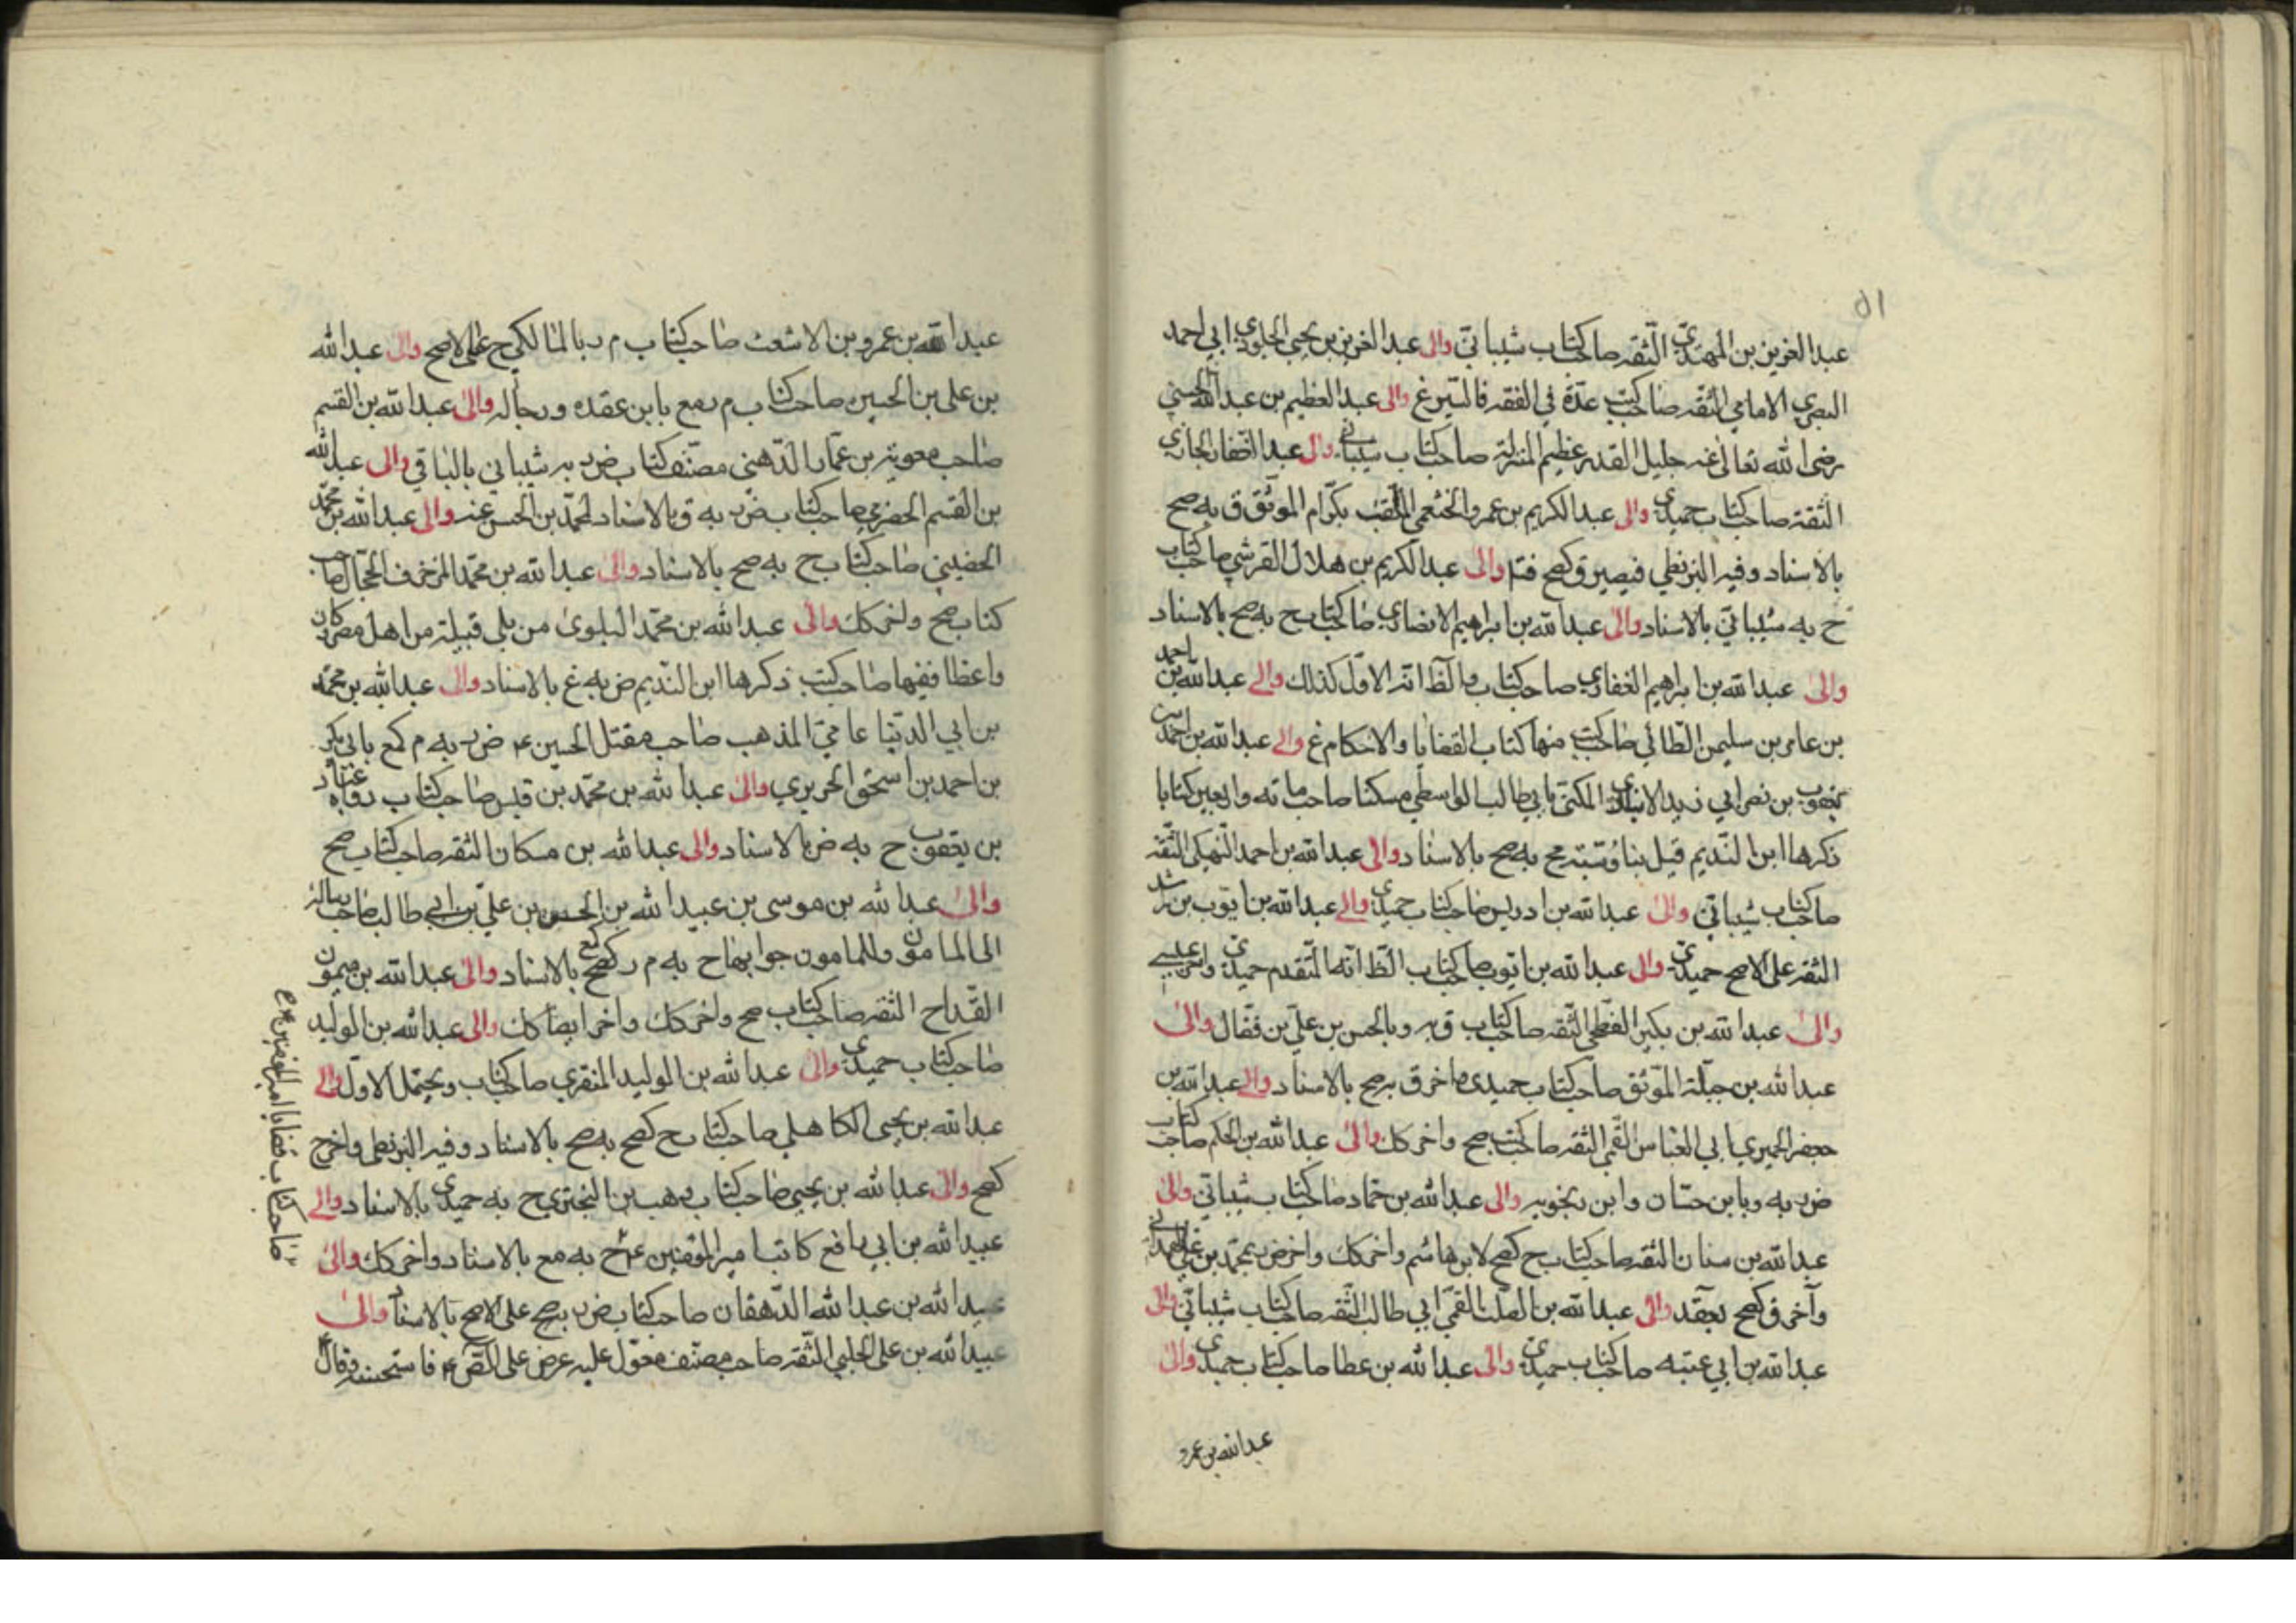 ٥١
عبد العزيز بن المهتدي الثقه صاحب كتاب شيباني والى عبد العزيز بن يحيى الجلودي ابي احمد
البصري الامامي الثقه صاحب كتب عدّة في الفقه والسير غ والى عبد العظيم بن عبد الله الحسني
رضي الله تعالى عنه جليل القدر عظيم المنزلة صاحب كتاب شيباني والى عبد الغفار الجازي
الثقة صاحب كتاب حميدي والى عبد الكريم بن عمرو الخثعمي الملقب بكرام الموثق ق به صح
بالاسناد وفيه البزنطي فيصير ق كصح فتد والى عبد الكريم بن هلال القرشي صاحب كتاب
ح به شيباني بالاسناد والى عبد الله بن ابراهيم الانصاري صاحب كتاب ح به صح بالاسناد
والى عبد الله بن ابراهيم الغفاري صاحب كتاب والظ انه الاول كذلك والى عبد الله بن احمد
بن عامر بن سليمن الطائي صاحب كتب منها كتاب القضايا والاحكام غ والى عبد الله بن احمد بن
يعقوب بن نصر ابي زيد الانباري المكنى بابي طالب الواسطي مسكنا صاحب مائه واربعين كتابا
ذكرها ابن النديم قيل بناوُسيته مح به صح بالاسناد والى عبد الله بن احمد النهيكي الثقه
صاحب كتاب شيباني والى عبد الله بن ادريس صاحب كتاب حميدي والى عبد الله بن ايوب بن راشد
الثقه على الاصح حميدي والى عبد الله بن ايوب صاحب كتاب الظ انه المتقدم حميدي
والى عبد الله بن بكير الفطحي الثقه صاحب كتاب ق به وبالحسن بن علي بن فضال والى
عبد الله بن جبلة الموثق صاحب كتاب حميدي واخر ق به صح بالاسناد والى عبد الله بن
جعفر الحميري ابي العباس القمي الثقه صاحب كتب صح واخر كك والى عبد الله بن الحكم صاحب كتاب
ض به وبابن حسان وابن رنجويه والى عبد الله بن حماد صاحب كتاب شيباني والى
عبد الله بن سنان الثقه صاحب كتاب ح كصح لابن هاشم واخر كك واخر ض بمحمد بن علي الهمداني
وآخر ق كصح والى عبد الله بن الصلت القمي ابي طالب الثقه صاحب كتاب شيباني والى
عبد الله بن ابي عتبه صاحب كتاب حميدي والى عبد الله بن عطا صاحب كتاب حميدي والى
عبد الله بن عمرو
عبد الله بن عمرو بن الاشعث صاحب كتاب م ر بالمالكي ح على الاصح والى عبد الله
بن علي بن الحسين صاحب كتاب م مع بابن عقده ورجاله والى عبد الله بن القسم
صاحب معوية بن عمار الدهني مصنف كتاب ض به شيباني بالباقي والى عبد الله
بن القسم الحضرمي صاحب كتاب ض به ق بالاسناد لمحمد بن الحسن عنه والى عبد الله بن محمد
الحضيني صاحب كتاب ح به صح بالاسناد والى عبد الله بن محمد المزخرف الحجال صاحب
كتاب صح واخر كك والى عبد الله بن محمد البلوي من بلي قبيلة من اهل مصر كان
واعظا فقيها صاحب كتب ذكرها ابن النديم ض به غ بالاسناد والى عبد الله بن محمد
بن ابي الدنيا عامي المذهب صاحب مقتل الحسين ع ض به م كمع بابي بكر
بن احمد بن اسحق الحريري والى عبد الله بن محمد بن قيس صاحب كتاب رواه عباد
بن يعقوب ح به ض بالاسناد والى عبد الله بن مسكان الثقه صاحب كتاب صح
والى عبد الله بن موسى بن عبيد الله بن الحسن بن علي بن ابي طالب صاحب رسالة
الى المامون وللمامون جوابها ح به م ركصح كمع بالاسناد والى عبد الله بن ميمون
القداح الثقه صاحب كتاب صح واخر كك واخر ايضا كك والى عبد الله بن الوليد
صاحب كتاب حميدي والى عبد الله بن الوليد المنقري صاحب كتاب ويحتمل الاول والى
عبد الله بن يحيى الكاهلي صاحب كتاب ح كصح به صح بالاسناد وفيه البزنطي واخر ح
كصح والى عبد الله بن يحيى صاحب كتاب وهب بن البختري ح به حميدي بالاسناد والى
عبيد الله بن ابي رافع كاتب امير المؤمنين ع ح به مع بالاسناد واخر كك والى
عبيد الله بن عبد الله الدهقان صاحب كتاب ض به صح على الاصح بالاسناد والى
عبيد الله بن علي الحلبي الثقه صاحب مصنف معول عليه عرض على الص ع فاستحسنه وقال
صاحب كتاب قضايا امير المؤمنين ع م